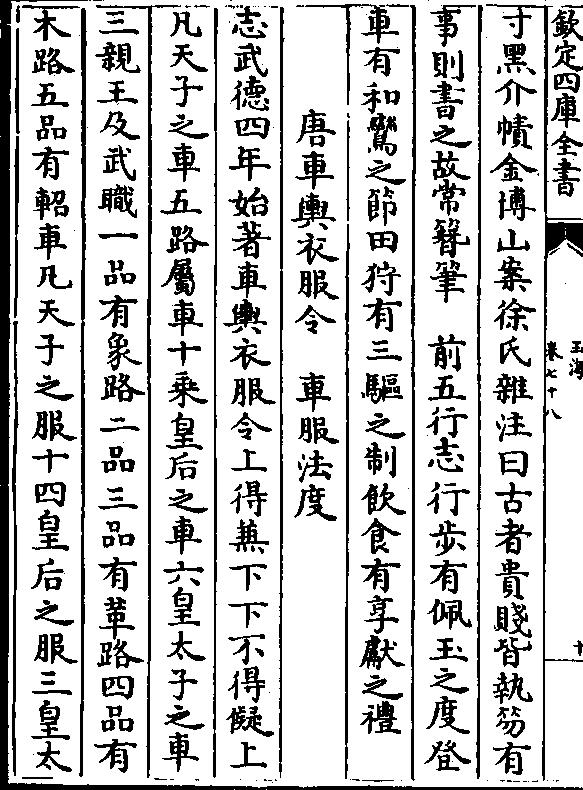 欽定四庫全書
玉海
卷七十八
十
寸黑介幘金博山案徐氏雜注曰古者貴賤皆執笏有
事則書之故常簪筆　前五行志行步有佩玉之度登
車有和鸞之節田狩有三驅之制飲食有享獻之禮
唐車輿衣服令　車服法度
志武德四年始著車輿衣服令上得兼下下不得儗上
凡天子之車五路屬車十乘皇后之車六皇太子之車
三親王及武職一品有象路二品三品有革路四品有
木路五品有軺車凡天子之服十四皇后之服三皇太